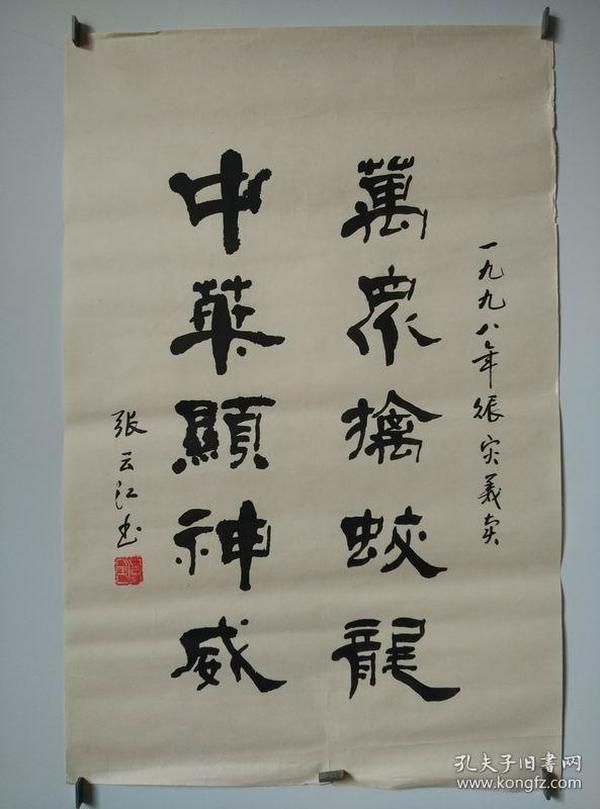 一九九八年振灾義卖
萬眾擒蛟龍
中華顯神威
张云江书
孔夫子旧書网
www.kongfz.com